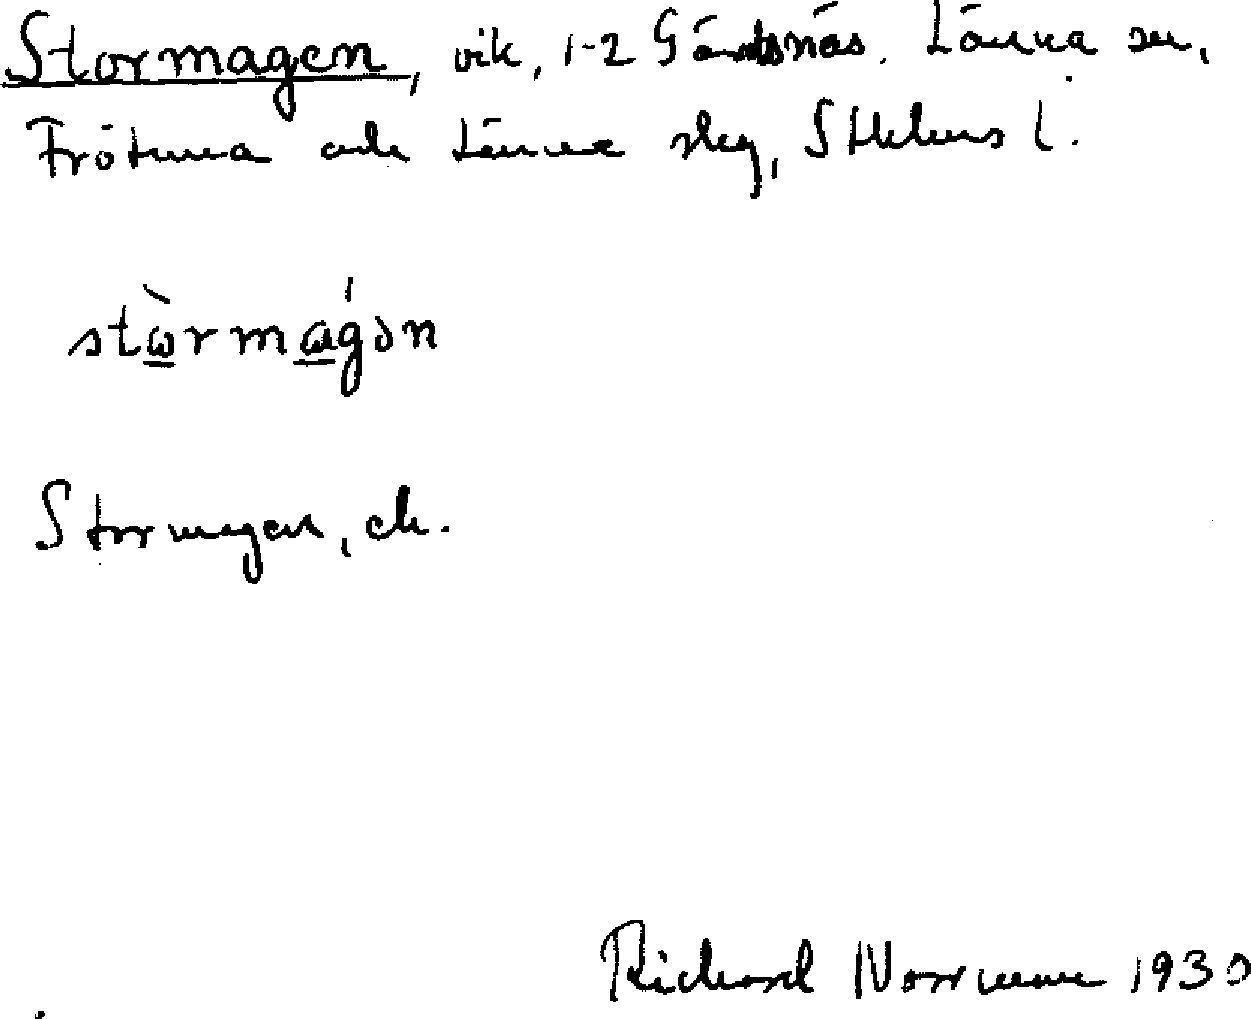 Stormagen, vik, 1-2 Länna sn,
Frötuna och Länna slg, Sthlms l.
stòrmágən
Stormagen, ek.
Richard Norrman 1930